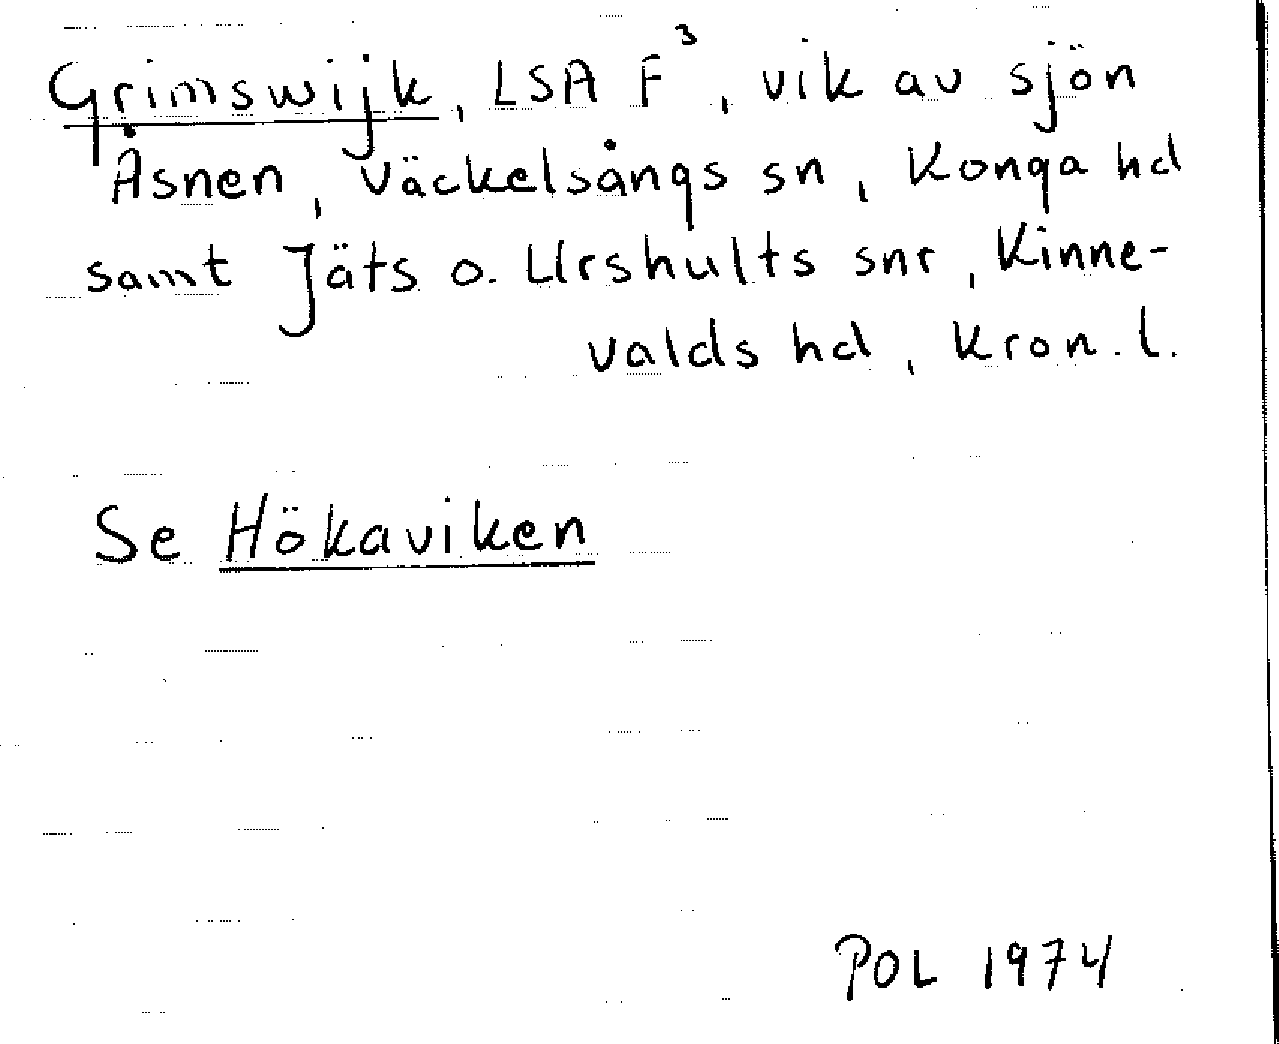 Grimswijk, LSA F³, vik av sjön
Åsnen, Väckelsångs sn, Konga hd
samt Jäts o. Urshults snr, Kinne-
valds hd, Kron. l.
Se Hökaviken
POL 1974